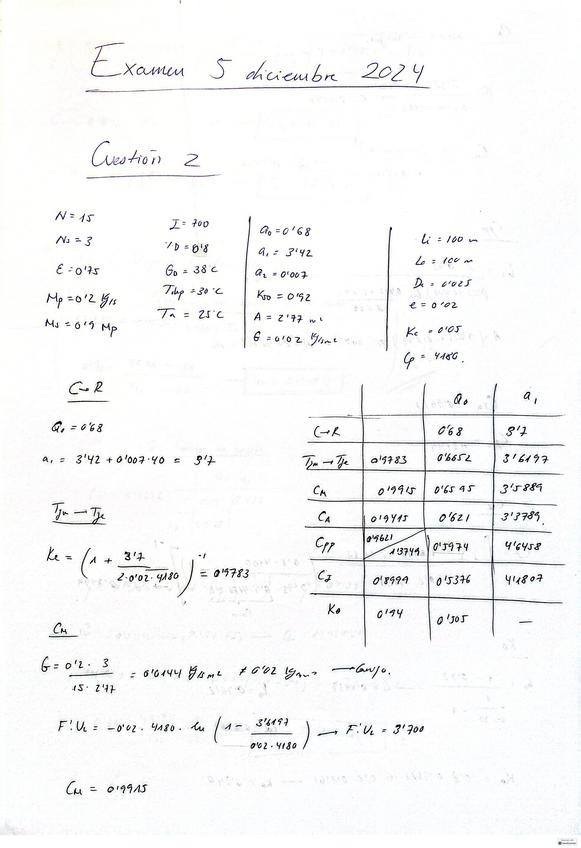 Examen 5 diciembre 2024
Cuestión 2
N = 15
N₂ = 3
ε = 0'75
Mp = 0'2 kg/s
Ms = 0'9 Mp
I = 700
ID = 0'8
G₀ = 38 C
= 30 °C
Ta = 25 °C
a₀ = 0'68
a₁ = 3'42
a₂ = 0'007
K50 = 0'92
A = 2'77 m²
G = 0'02 kg/sm²
Li = 100 m
Lo = 100 m
Di = 0'025
e = 0'02
Kc = 0'05
Cp = 4180.
C→R
Q₀ = 0'68
a₁ = 3'42 + 0'007·40 = 3'7
Tfm → Tfe
Ke = (1 + 3'7 / 2·0'02·4180)⁻¹ = 0'9783
Q₀ a₁
C→R 0'68 3'7
Tfm → Tfe 0'9783 0'6652 3'6197
CM 0'9915 0'6595 3'5889
CA 0'9415 0'621 3'3789.
Cpp 0'9621 1'3749 0'5974 4'6458
CI 0'8999 0'5376 4'1807
Kθ 0'94 0'505 —
CM
G = 0'2 · 3 / 15 · 2'77 = 0'0144 kg/sm² ≠ 0'02 kg/sm²
F'·UL = -0'02 · 4180 · ln (1 - 3'6197 / 0'02·4180) → F'·UL = 3'700
CM = 0'9915